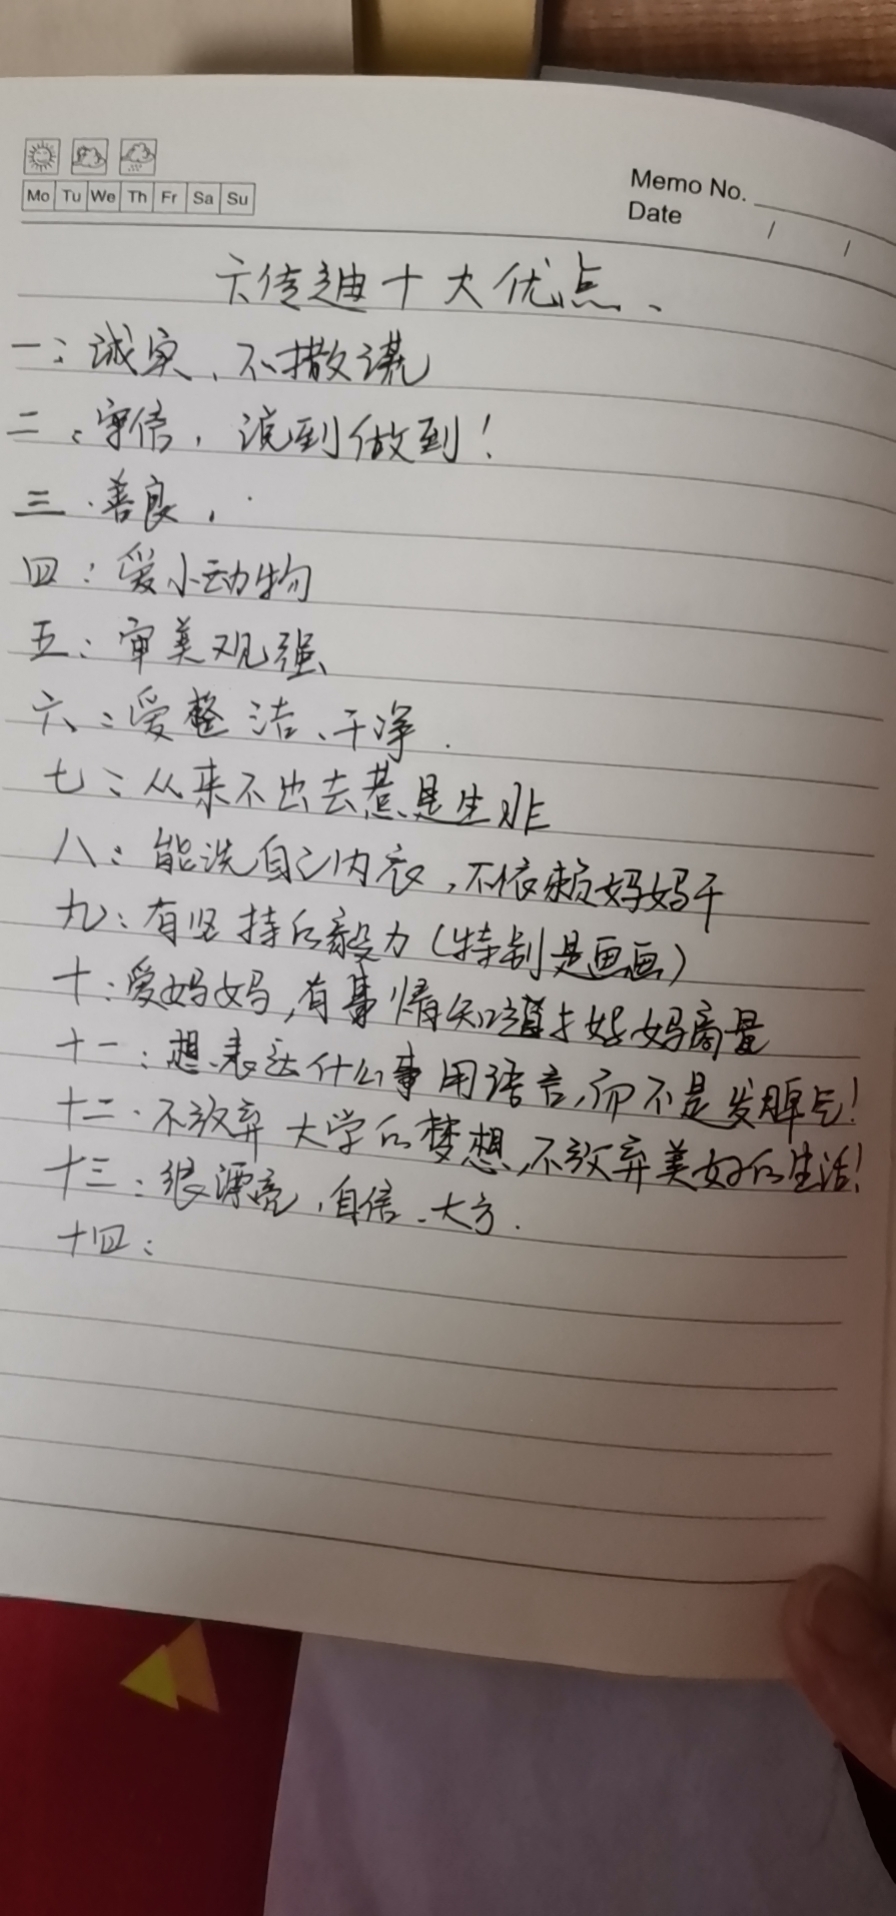 Mo Tu We Th Fr Sa Su
Memo No.
Date / /
传迪十大优点、
一：诚实、不撒谎
二：守信，说到做到！
三．善良，
四：爱小动物
五：审美观强
六：爱整洁、干净．
七：从来不出去惹是生非
八：能洗自己内衣，不依赖妈妈干
九：有坚持的毅力（特别是画画）
十：爱妈妈，有事情知道找妈妈商量
十一：想表达什么事用语言，而不是发脾气！
十二．不放弃大学的梦想，不放弃美好的生活！
十三：很漂亮，自信、大方．
十四：